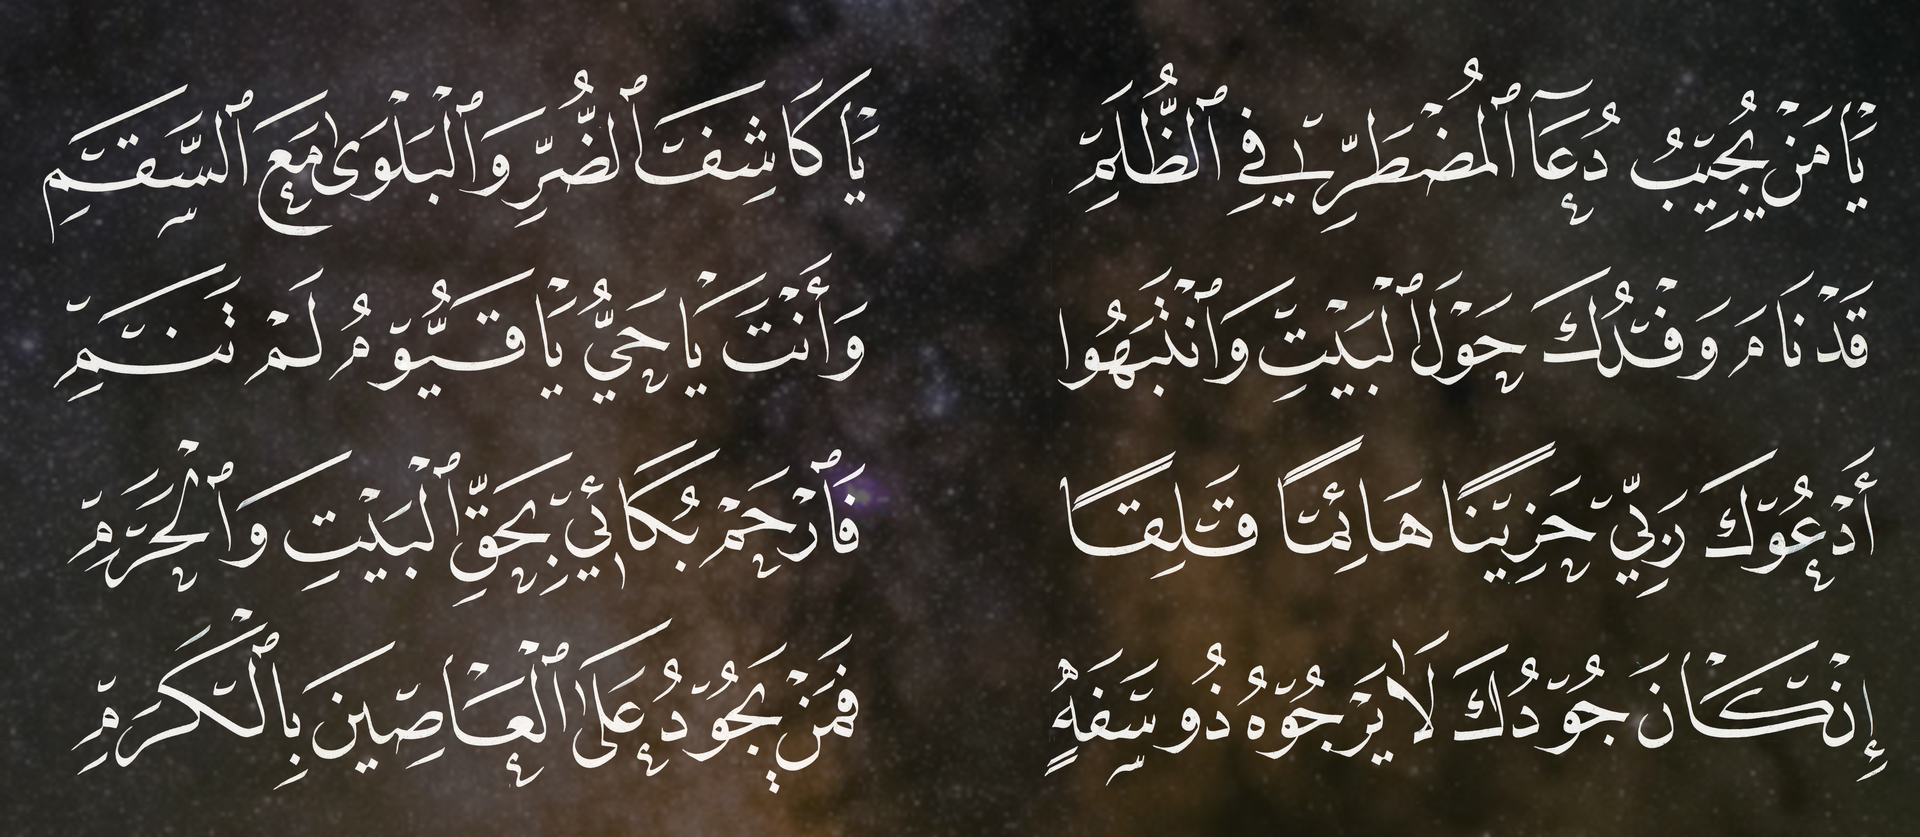 يَا مَنْ يُجِيبُ دُعَآ ٱلْمُضْطَرِّ فِي ٱلظُّلَمِ يَا كَاشِفَ ٱلضُّرِّ وَٱلْبَلْوَىٰ مَعَ ٱلسَّقَمِ
قَدْ نَامَ وَفْدُكَ حَوْلَ ٱلْبَيْتِ وَٱنْتَبَهُوا وَأَنْتَ يَا حَيُّ يَا قَيُّومُ لَمْ تَنَمِ
أَدْعُوكَ رَبِّي حَزِينًا هَائِمًا قَلِقًا فَٱرْحَمْ بُكَائِي بِحَقِّ ٱلْبَيْتِ وَٱلْحَرَمِ
إِنْ كَانَ جُودُكَ لَا يَرْجُوهُ ذُو سَفَهٍ فَمَنْ يَجُودُ عَلَىٰ ٱلْعَاصِينَ بِٱلْكَرَمِ